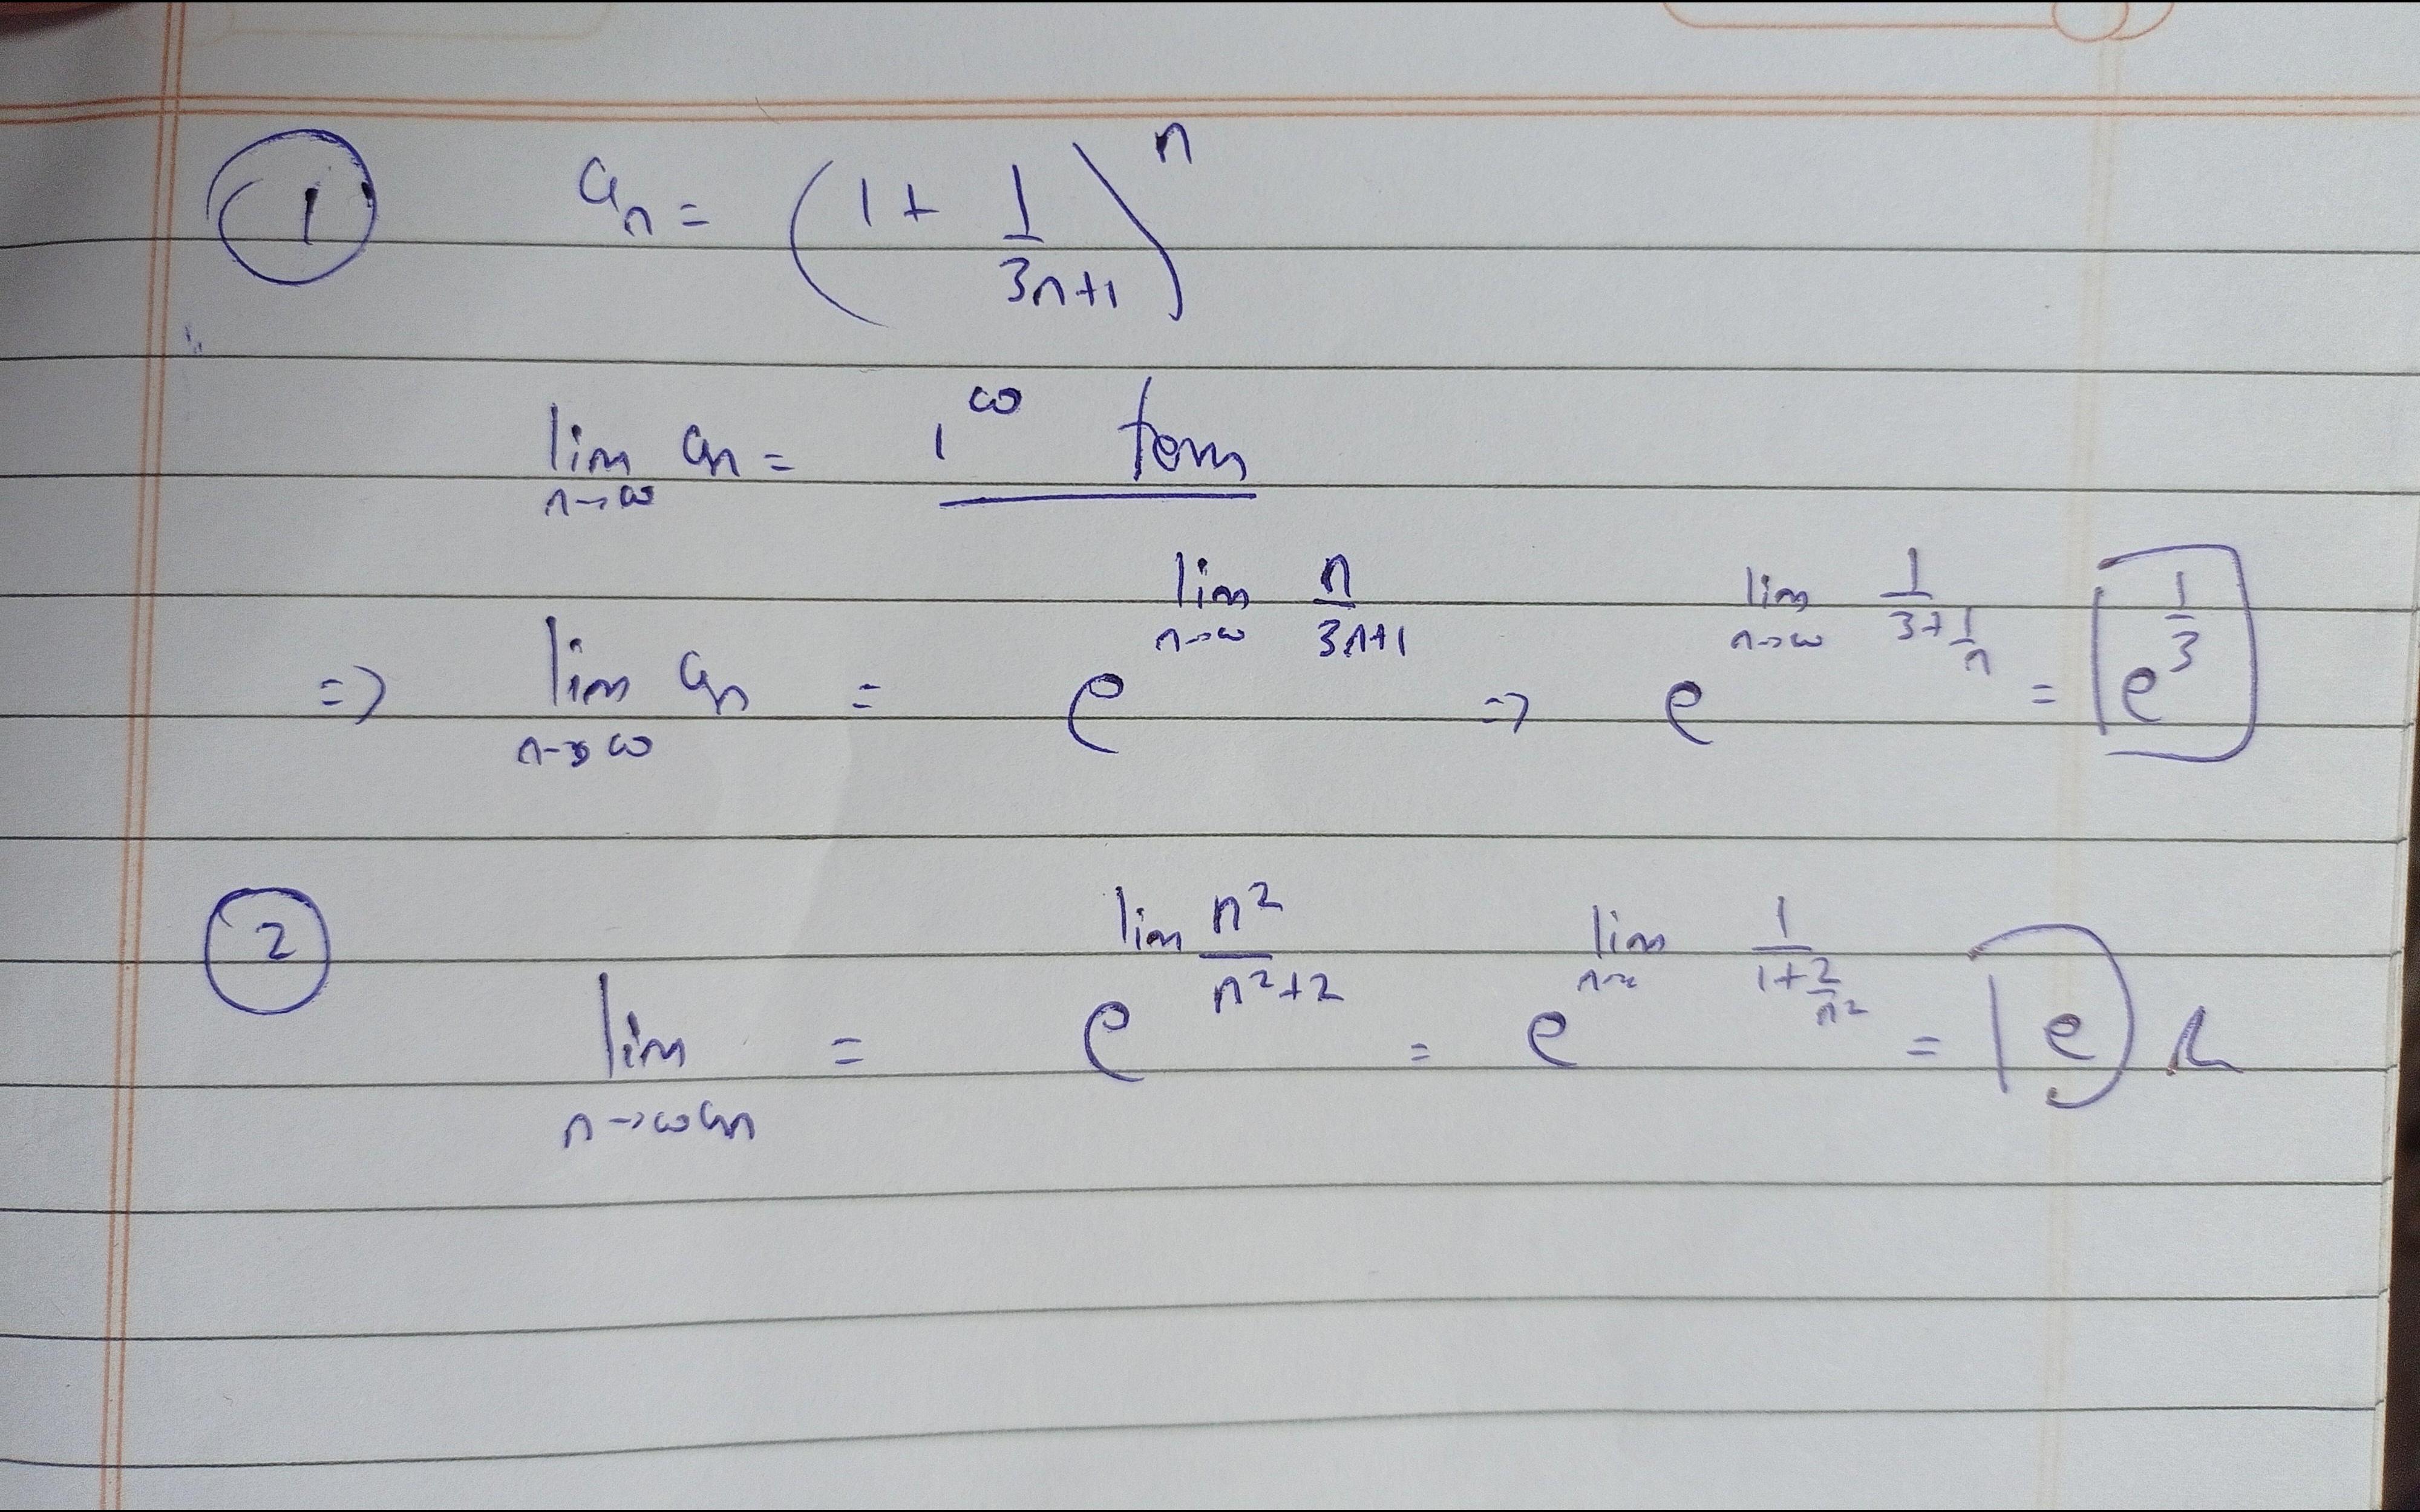 ① aₙ = (1 + 1/(3n+1))ⁿ
lim n→∞ aₙ = 1^∞ form
=> lim n→∞ aₙ = e^(lim n→∞ n/(3n+1)) => e^(lim n→∞ 1/(3+1/n)) = e^(1/3)
② lim n→∞ aₙ = e^(lim n²/(n²+2)) = e^(lim n→∞ 1/(1+2/n²)) = e